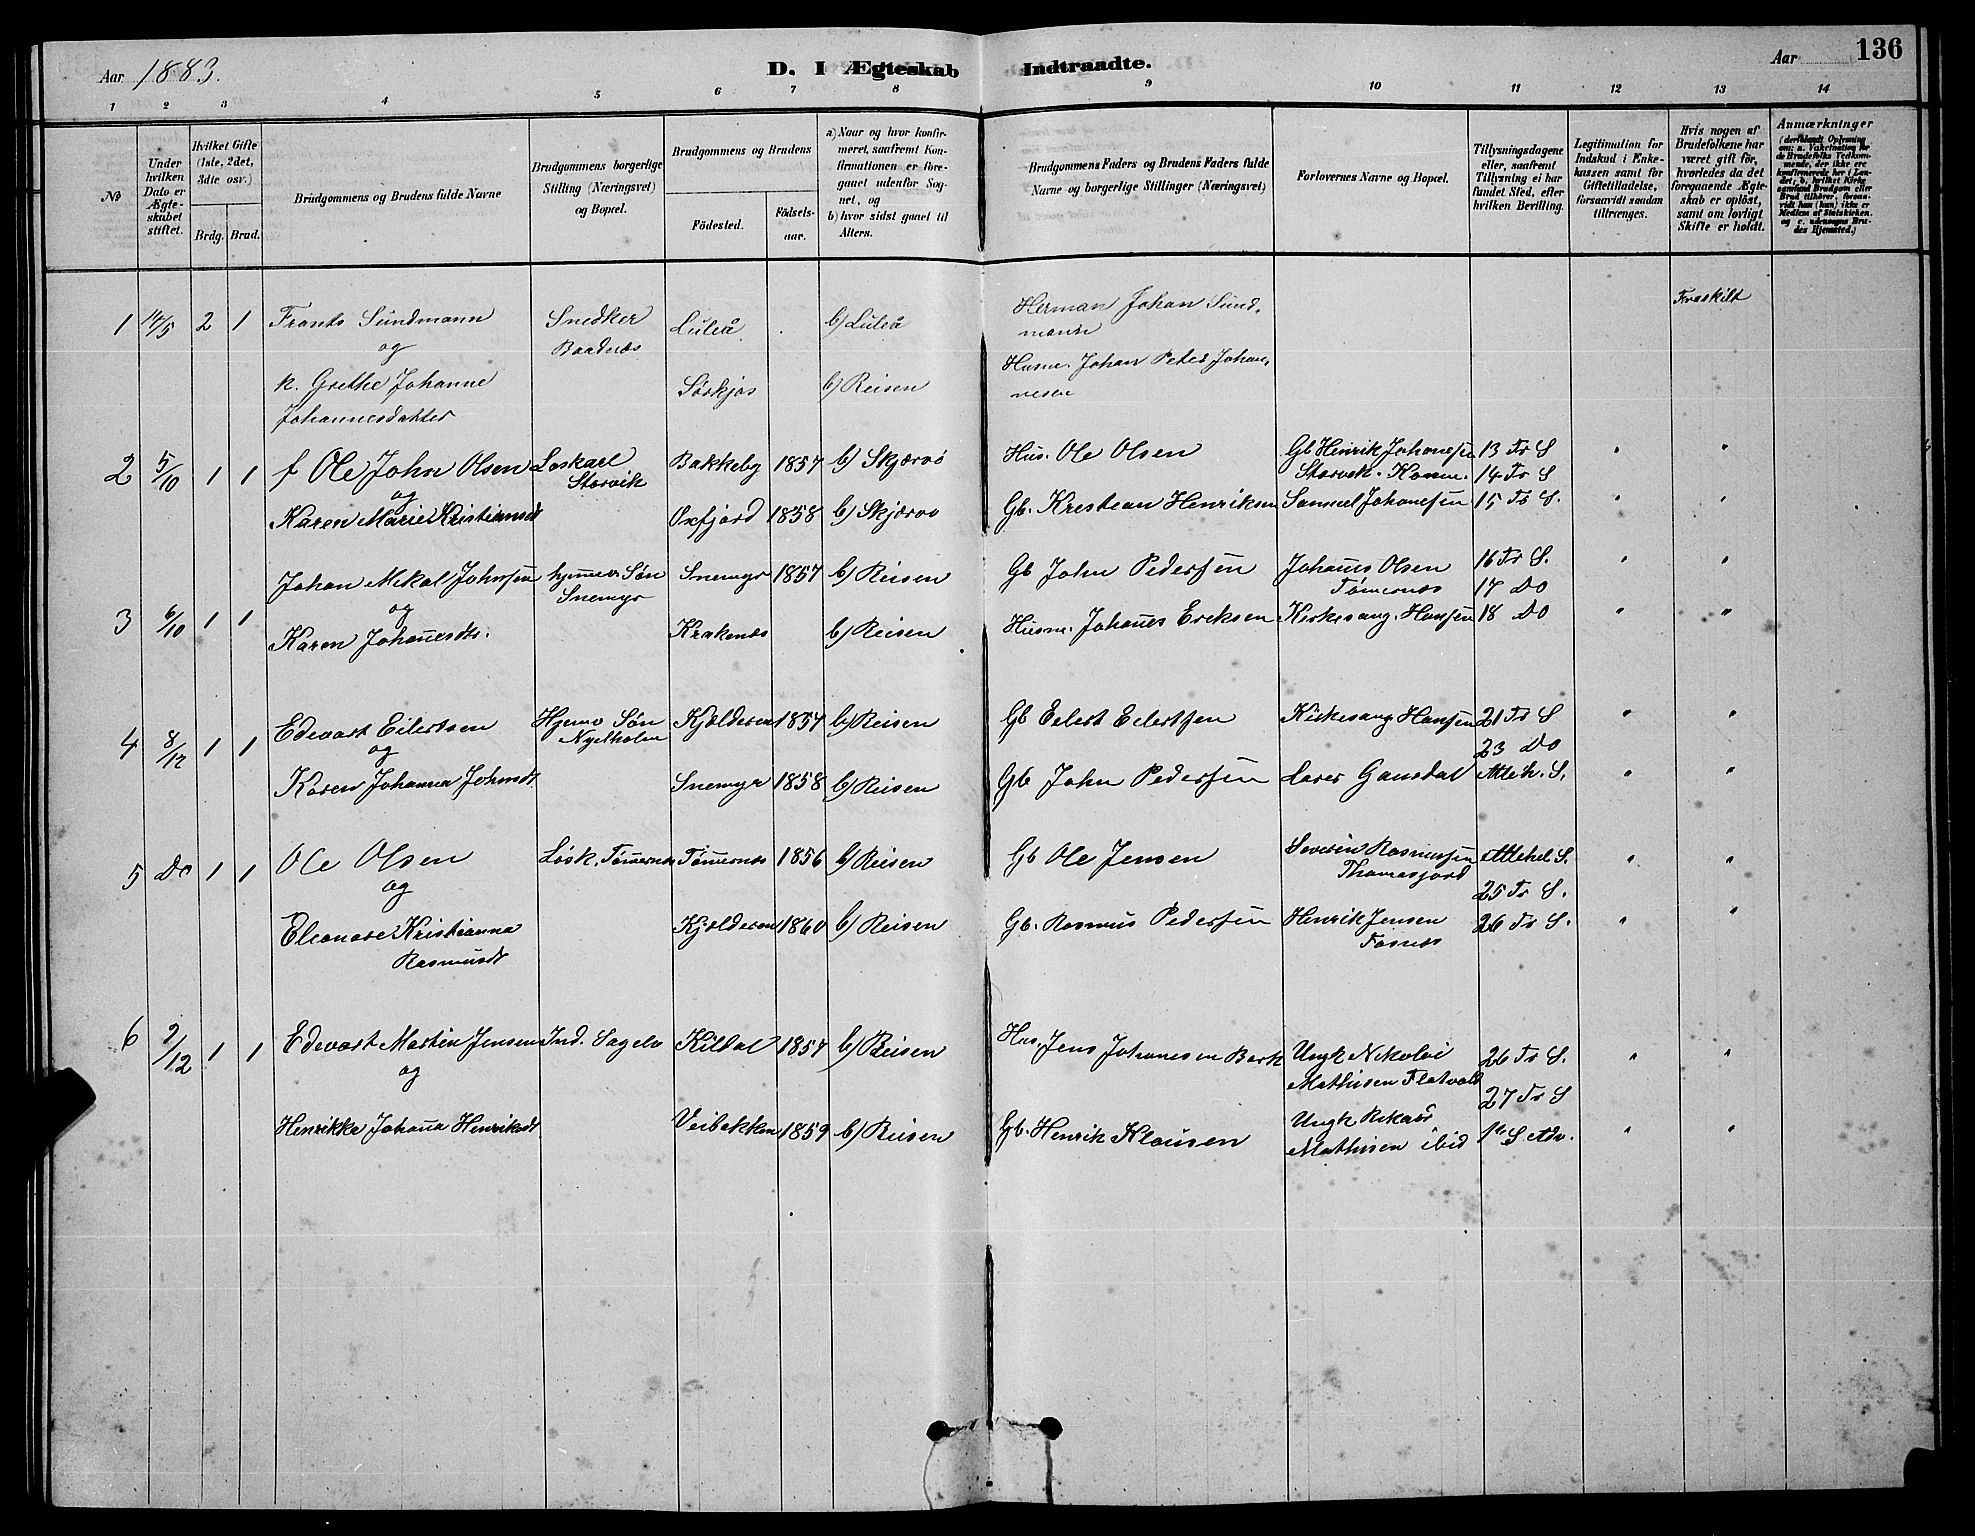 Aar 1883.
D. I Ægteskab Indtraadte.
Aar 136
1 2 3 4 5 6 7 8 9 10 11 12 13 14
No
Under hvilken Dato er Ægteskabet stiftet.
Hvilket Gifte (1ste, 2det, 3die osv.)
Brdg. Brud.
Brudgommens og Brudens fulde Navne
Brudgommens borgerlige Stilling (Næringsvei) og Bopæl.
Brudgommens og Brudens
Födested.
Födselsaar.
a) Naar og hvor konfirmeret, saafremt Konfirmationen er foregaaet udenfor Sognet, og
b) hvor sidst gaaet til Alters.
Brudgommens Faders og Brudens Faders fulde Navne og borgerlige Stillinger (Næringsvei)
Forlovernes Navne og Bopæl.
Tillysningsdagene eller, saafremt Tillysning ei har fundet Sted, efter hvilken Bevilling.
Legitimation for Indskud i Enkekassen samt for Giftetilladelse, forsaavidt saadan tiltrænges.
Hvis nogen af Brudefolkene har været gift för, hvorledes da det foregaaende Ægteskab er oplöst, samt om lovligt Skifte er holdt.
Anmærkninger
1 14/5 2 1 Frants Sundmann Snedker Luleå b) Luleå Herman Johan Sund- Fraskilt
og Baadnæs mann
k. Grethe Johanne Sørkjos b) Reisen Husm. Johan Peter Johan-
Johannesdatter nesen
2 5/10 1 1 f Ole John Olsen Loskarl Bakkeby 1857 b) Skjærvö Hus. Ole Olsen Gb Henrik Johanesen 13 Tr S " "
og Storvik Storvik. 14 Tr S
Karen Marie Kristiansdt Oxfjord 1858 b) Skjærvö Gb. Krestean Henriksen Samuel Johanesen 15 Tr S. " "
Johan Mikal Johnsen hjemv. Søn Snemyr 1857 b) Reisen Gb John Pedersen Johanes Olsen 16 Tr S. " "
3 6/10 1 1 og Snemyr Tømernæs 17 Do
Karen Johanesdt. Krakenæs b) Reisen Husm. Johanes Ereksen Kirkesang. Hansen 18 Do " "
Edevart Eilertsen Hjemv Søn Kjælderen 1857 b) Reisen Gb Eilert Eilertsen Kirkesang Hansen 21 Tr S " "
4 8/12 1 1 og 23 Do
Karen Johanna Johnsdt. Snemyr 1858 b) Reisen Gb John Pedersen Lars Gansdal Alleh. S. " "
5 Do 1 1 Ole Olsen Løsk. Tømernæs Tømernæs 1856 b) Reisen Gb Ole Jensen Severin Rasmusen Allehel S. " "
og 25 Tr S.
Eleonore Kristianna Kjælderen 1860 b) Reisen Gb. Rasmus Pedersen Henrik Jensen 26 Tr S. " "
Rasmusdt
6 9/12 1 1 Edevart Martin Jensen Ind. Kildal 1857 b) Reisen Hus. Jens Johanesen Bark Ungk Nikolai 26 Tr S. " "
og Mathisen Flatvold
27 Tr S
Henrikke Johana Henriksdt Veibakken 1859 b) Reisen Gb. Henrik Klausen Ungk Rikard 1te S. Adv. " "
Mathisen ibid